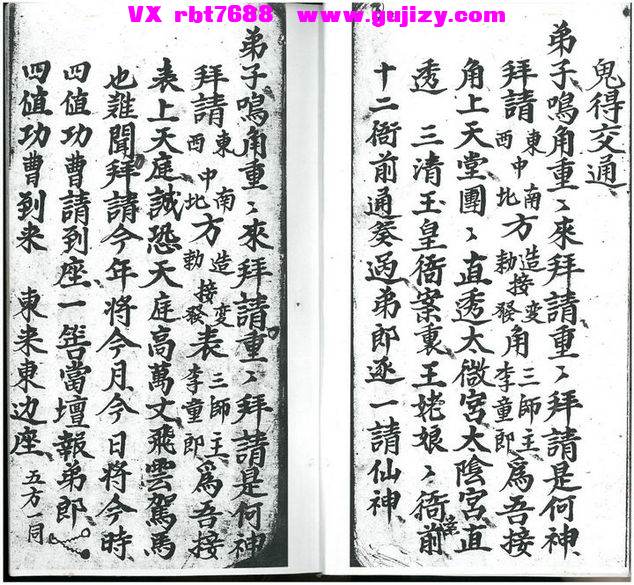 VX rbt7688 www.gujizy.com
鬼得交通
弟子鳴角重〻來拜請重〻拜請是何神
拜請東西中南北方造勅接變發角三師王李童郎爲吾接
角上天堂團〻直透太微宮太陰宮直
透 三清玉皇衙案裏王姥娘〻衙前
十二衙前通發過弟郎逐一請仙神
弟子鳴角重〻來拜請重〻拜請是何神
拜請東西中南北方造勅接變發表三師王李童郎爲吾接
表上天庭誠恐天庭高萬丈飛雲駕馬
也難聞拜請今年將今月今日將今時
四值功曹請到座一筶當壇報弟郎
四值功曹到来 東来東边座 五方一同